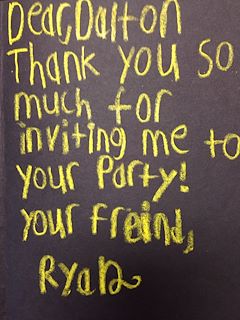 Dear, Dalton
Thank you so
much for
inviting me to
your Party!
your Freind,
Ryan